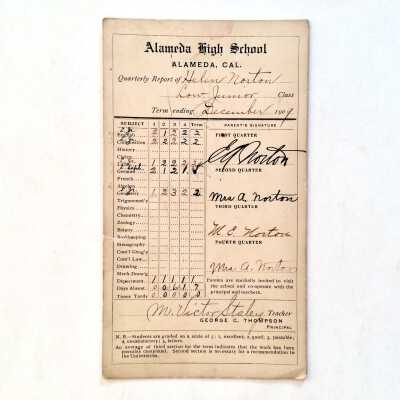 Alameda High School
ALAMEDA, CAL.
Quarterly Report of Helen Norton
Low Junior Class
Term ending December 1909
SUBJECT 1 2 3 4 Term PARENT'S SIGNATURE
English 2 1 2 2 2 FIRST QUARTER
Composition 2 2 2 2 2
History
Civics
E A Norton
German 2 1 2 1 SECOND QUARTER
French
Algebra
Geometry 1 2 3 2 2 Mrs A. Norton
Trigonom'y THIRD QUARTER
Physics
Chemistry
Zoology
Botany M. E. Norton
Bookkeeping FOURTH QUARTER
Stenography
Com'l Geog'y
Com'l Law
Drawing Mrs A. Norton
Mech. Draw'g
Deportment 1 1 1 1 1 Parents are cordially invited to visit
Days Absent 0 0 6 1 7 the school and co-operate with the
Times Tardy 0 0 0 0 0 principal and teachers.
M. Victor Staley Teacher
GEORGE C. THOMPSON
PRINCIPAL
N. B.—Students are graded on a scale of 5: 1, excellent; 2, good; 3, passable;
4, unsatisfactory; 5, failure.
An average of third section for the term indicates that the work has been
passably completed. Second section is necessary for a recommendation
to the Universities.